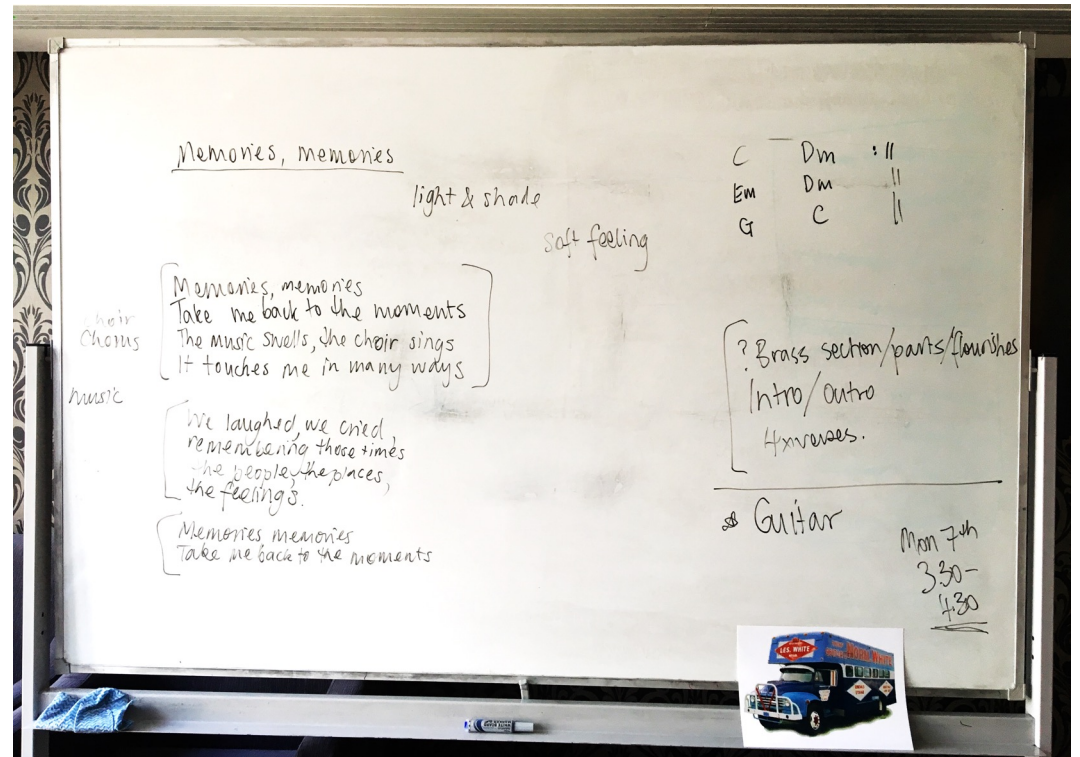 Memories, memories
light & shade
soft feeling
C Dm :||
Em Dm ||
G C ||
Choir
Chorus
music
Memories, memories
Take me back to the moments
The music swells, the choir sings
It touches me in many ways
We laughed, we cried,
remembering those times
the people, the places,
the feelings.
Memories memories
Take me back to the moments
? Brass section/parts/flourishes
Intro/outro
4xverses.
Guitar
Mon 7th
3.30-
4.30
LES. WHITE